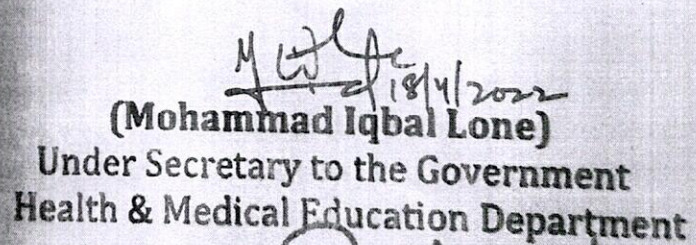 18/4/2022
(Mohammad Iqbal Lone)
Under Secretary to the Government
Health & Medical Education Department